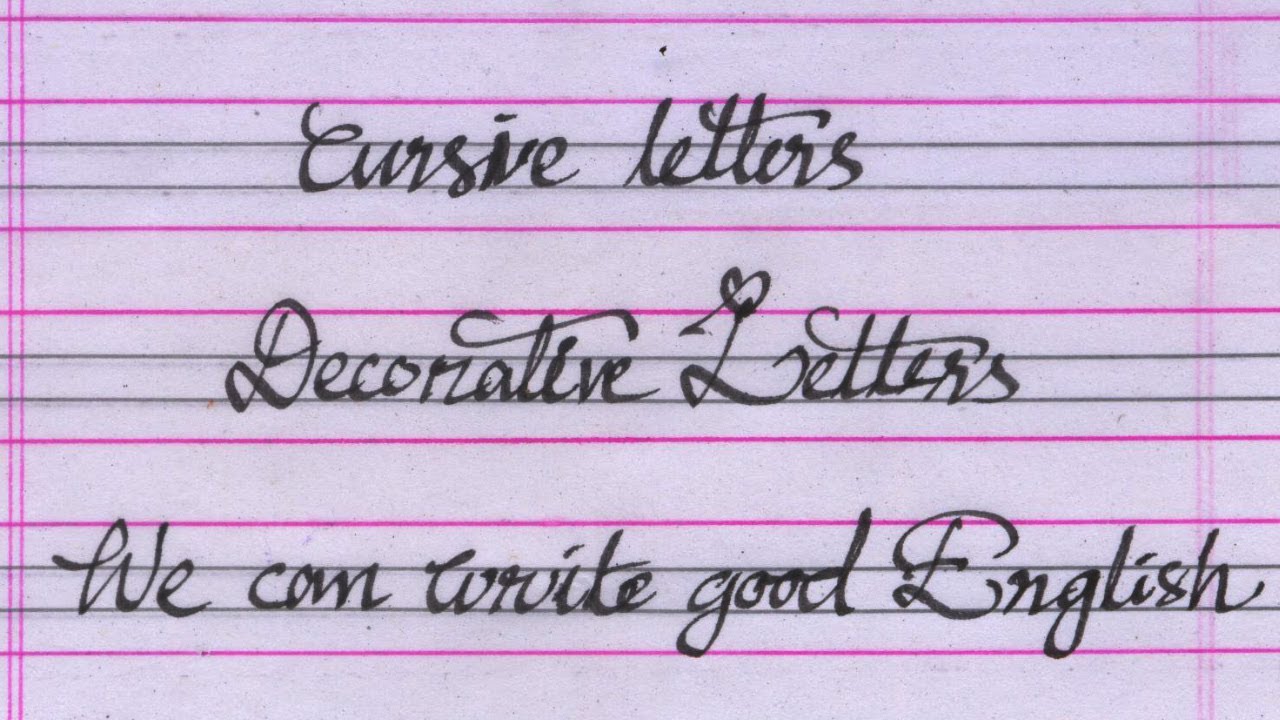 Cursive letters
Decorative Letters
We can write good English